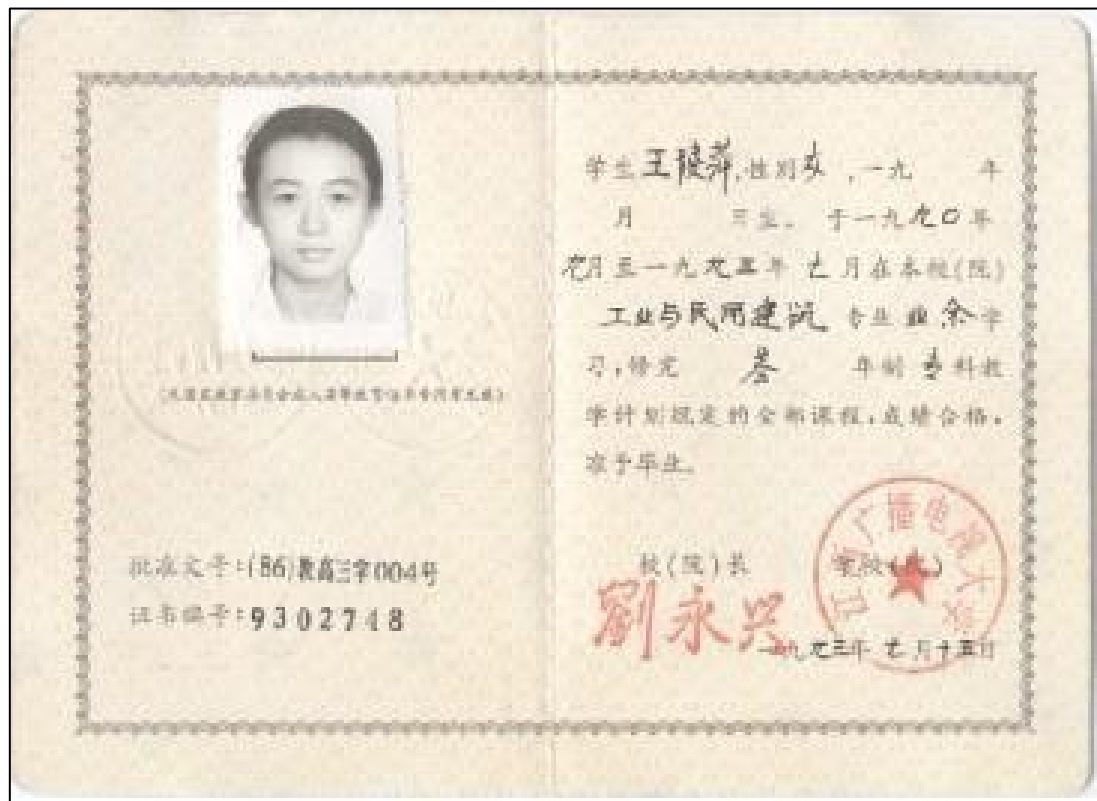 (国家教育委员会成人高等教育证书专用章无效)
批准文号:(86)教高三字004号
证书编号:9302718
学生王 萍,性别女,一九 年
月 日生。于一九九〇年
九月至一九九三年七月在本校(院)
工业与民用建筑 专业业余学
习,修完 叁 年制专科教
学计划规定的全部课程,成绩合格,
准予毕业。
校(院)长 学校(院)
劉永兴
广播电视大学
一九九三年七月十五日